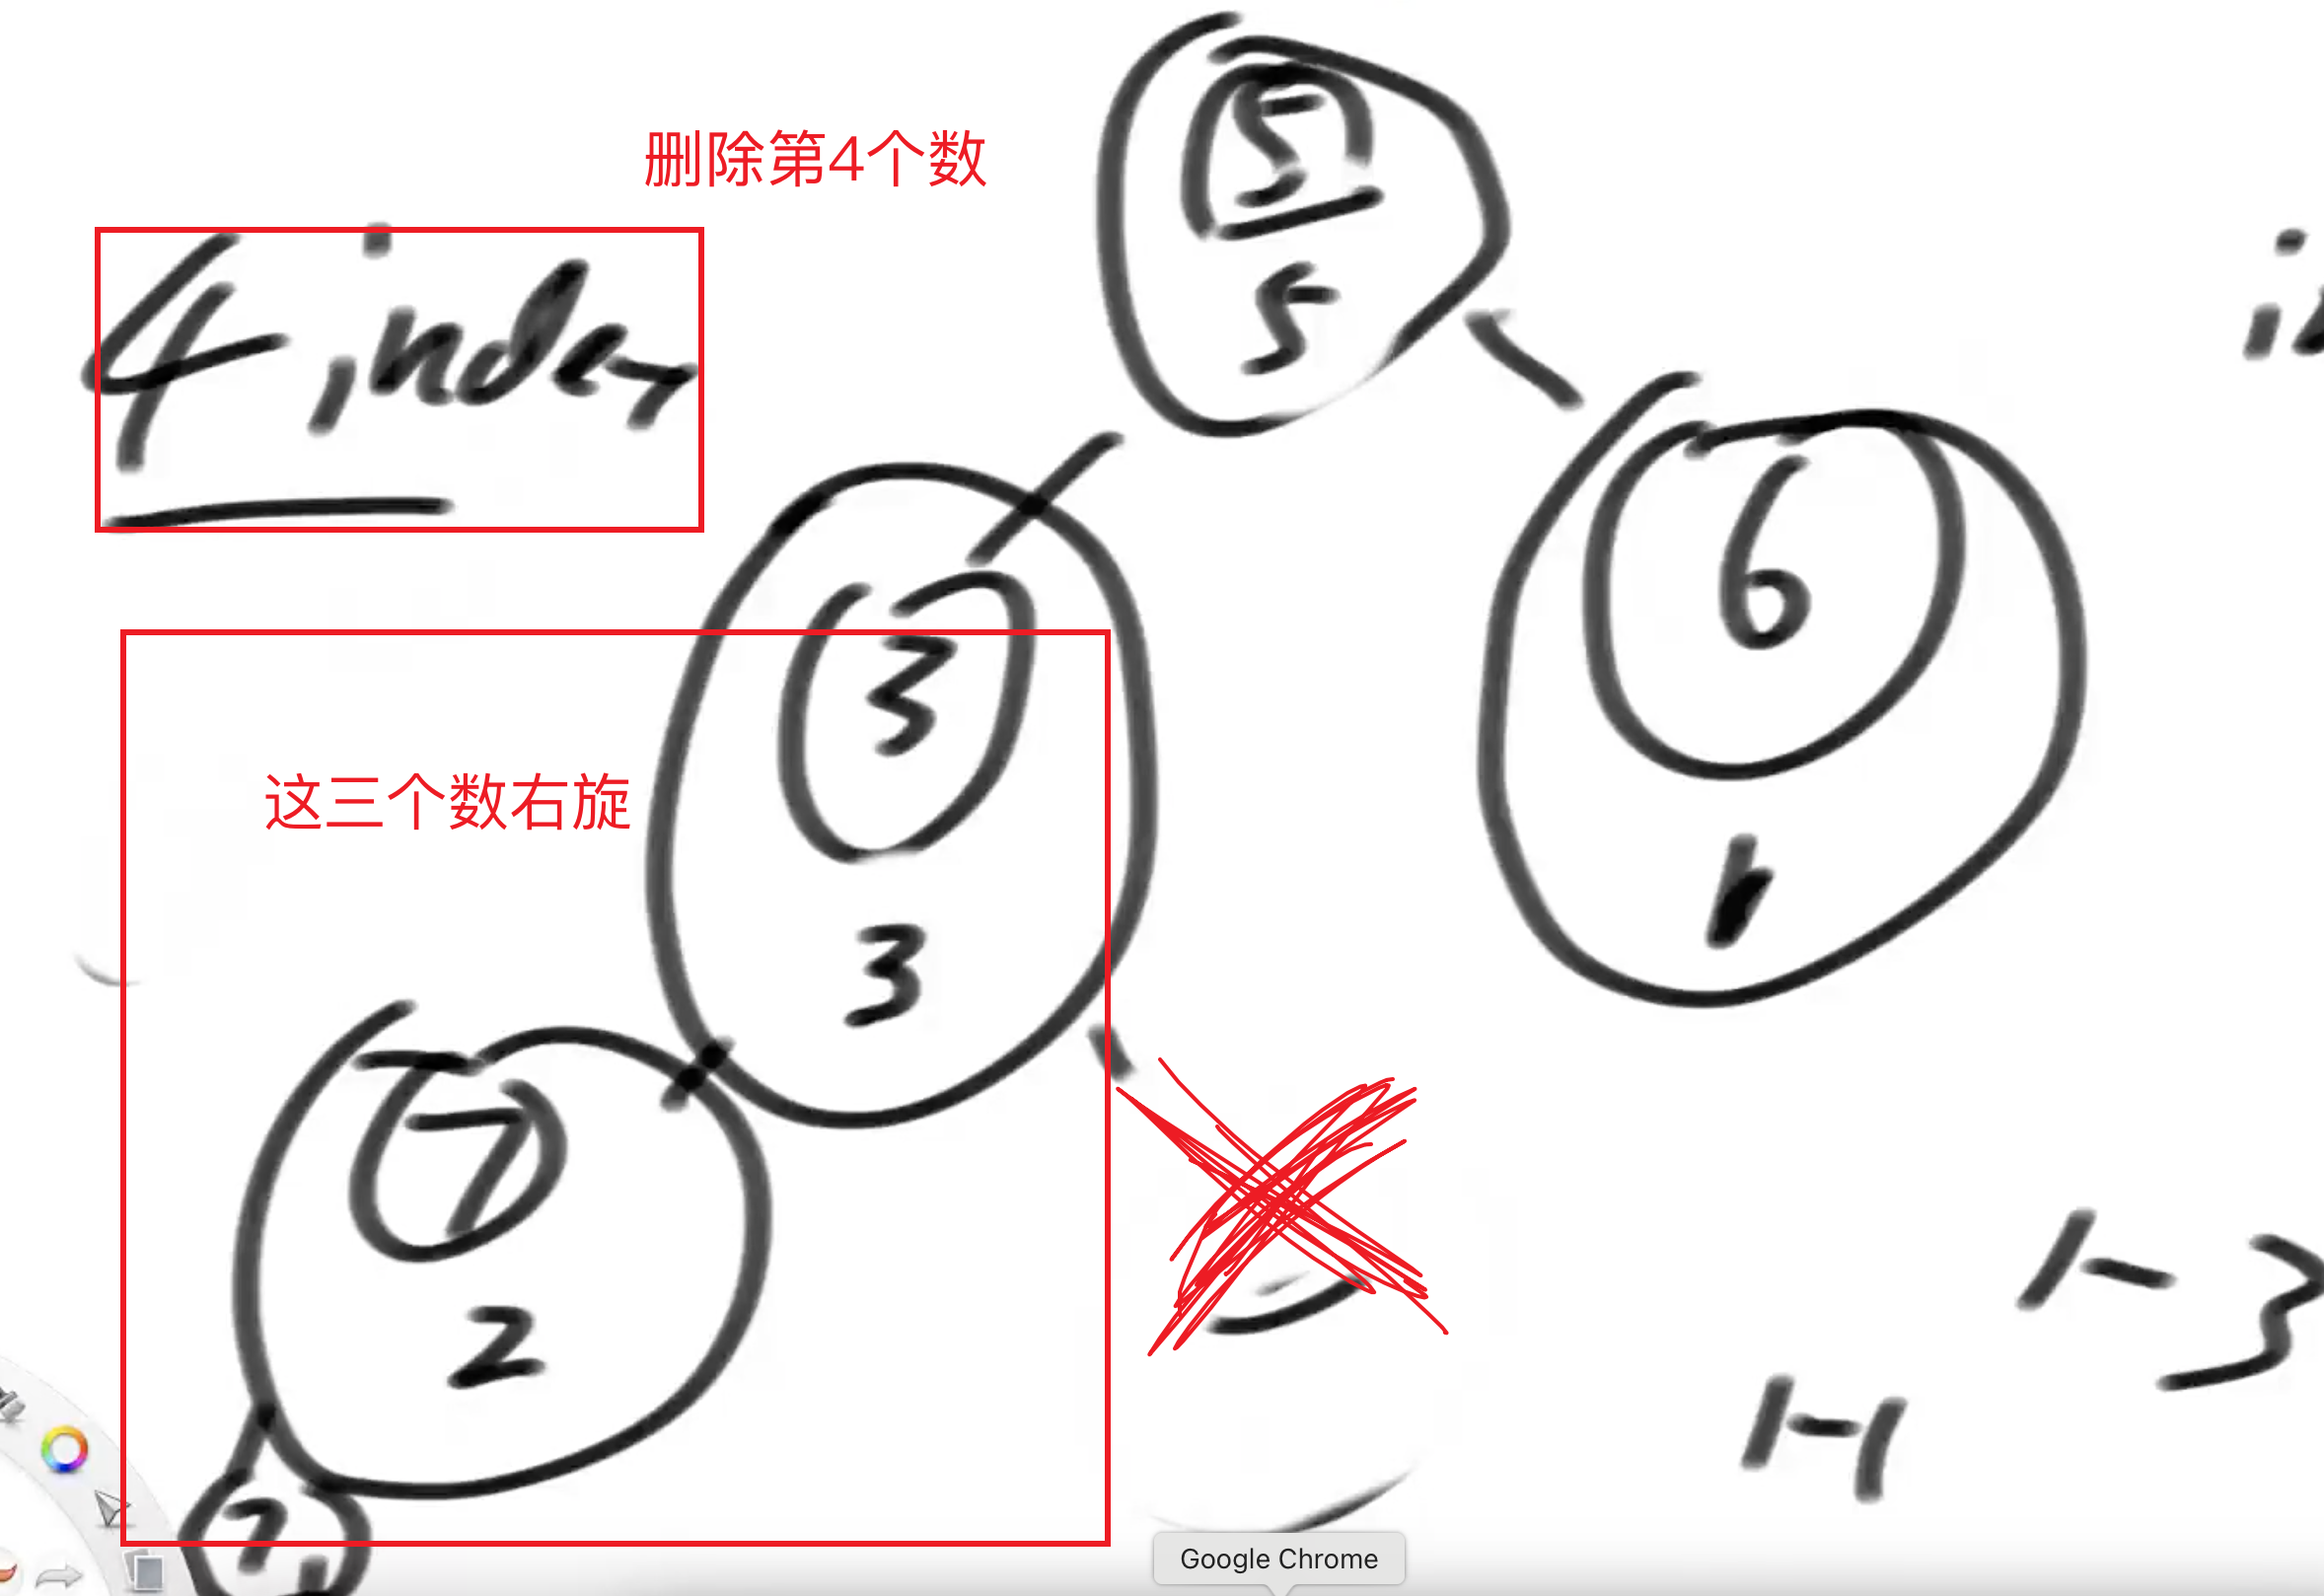 删除第4个数
5
5
4 index
6
1
3
3
这三个数右旋
7
2
7
1
1-3
1-1
Google Chrome